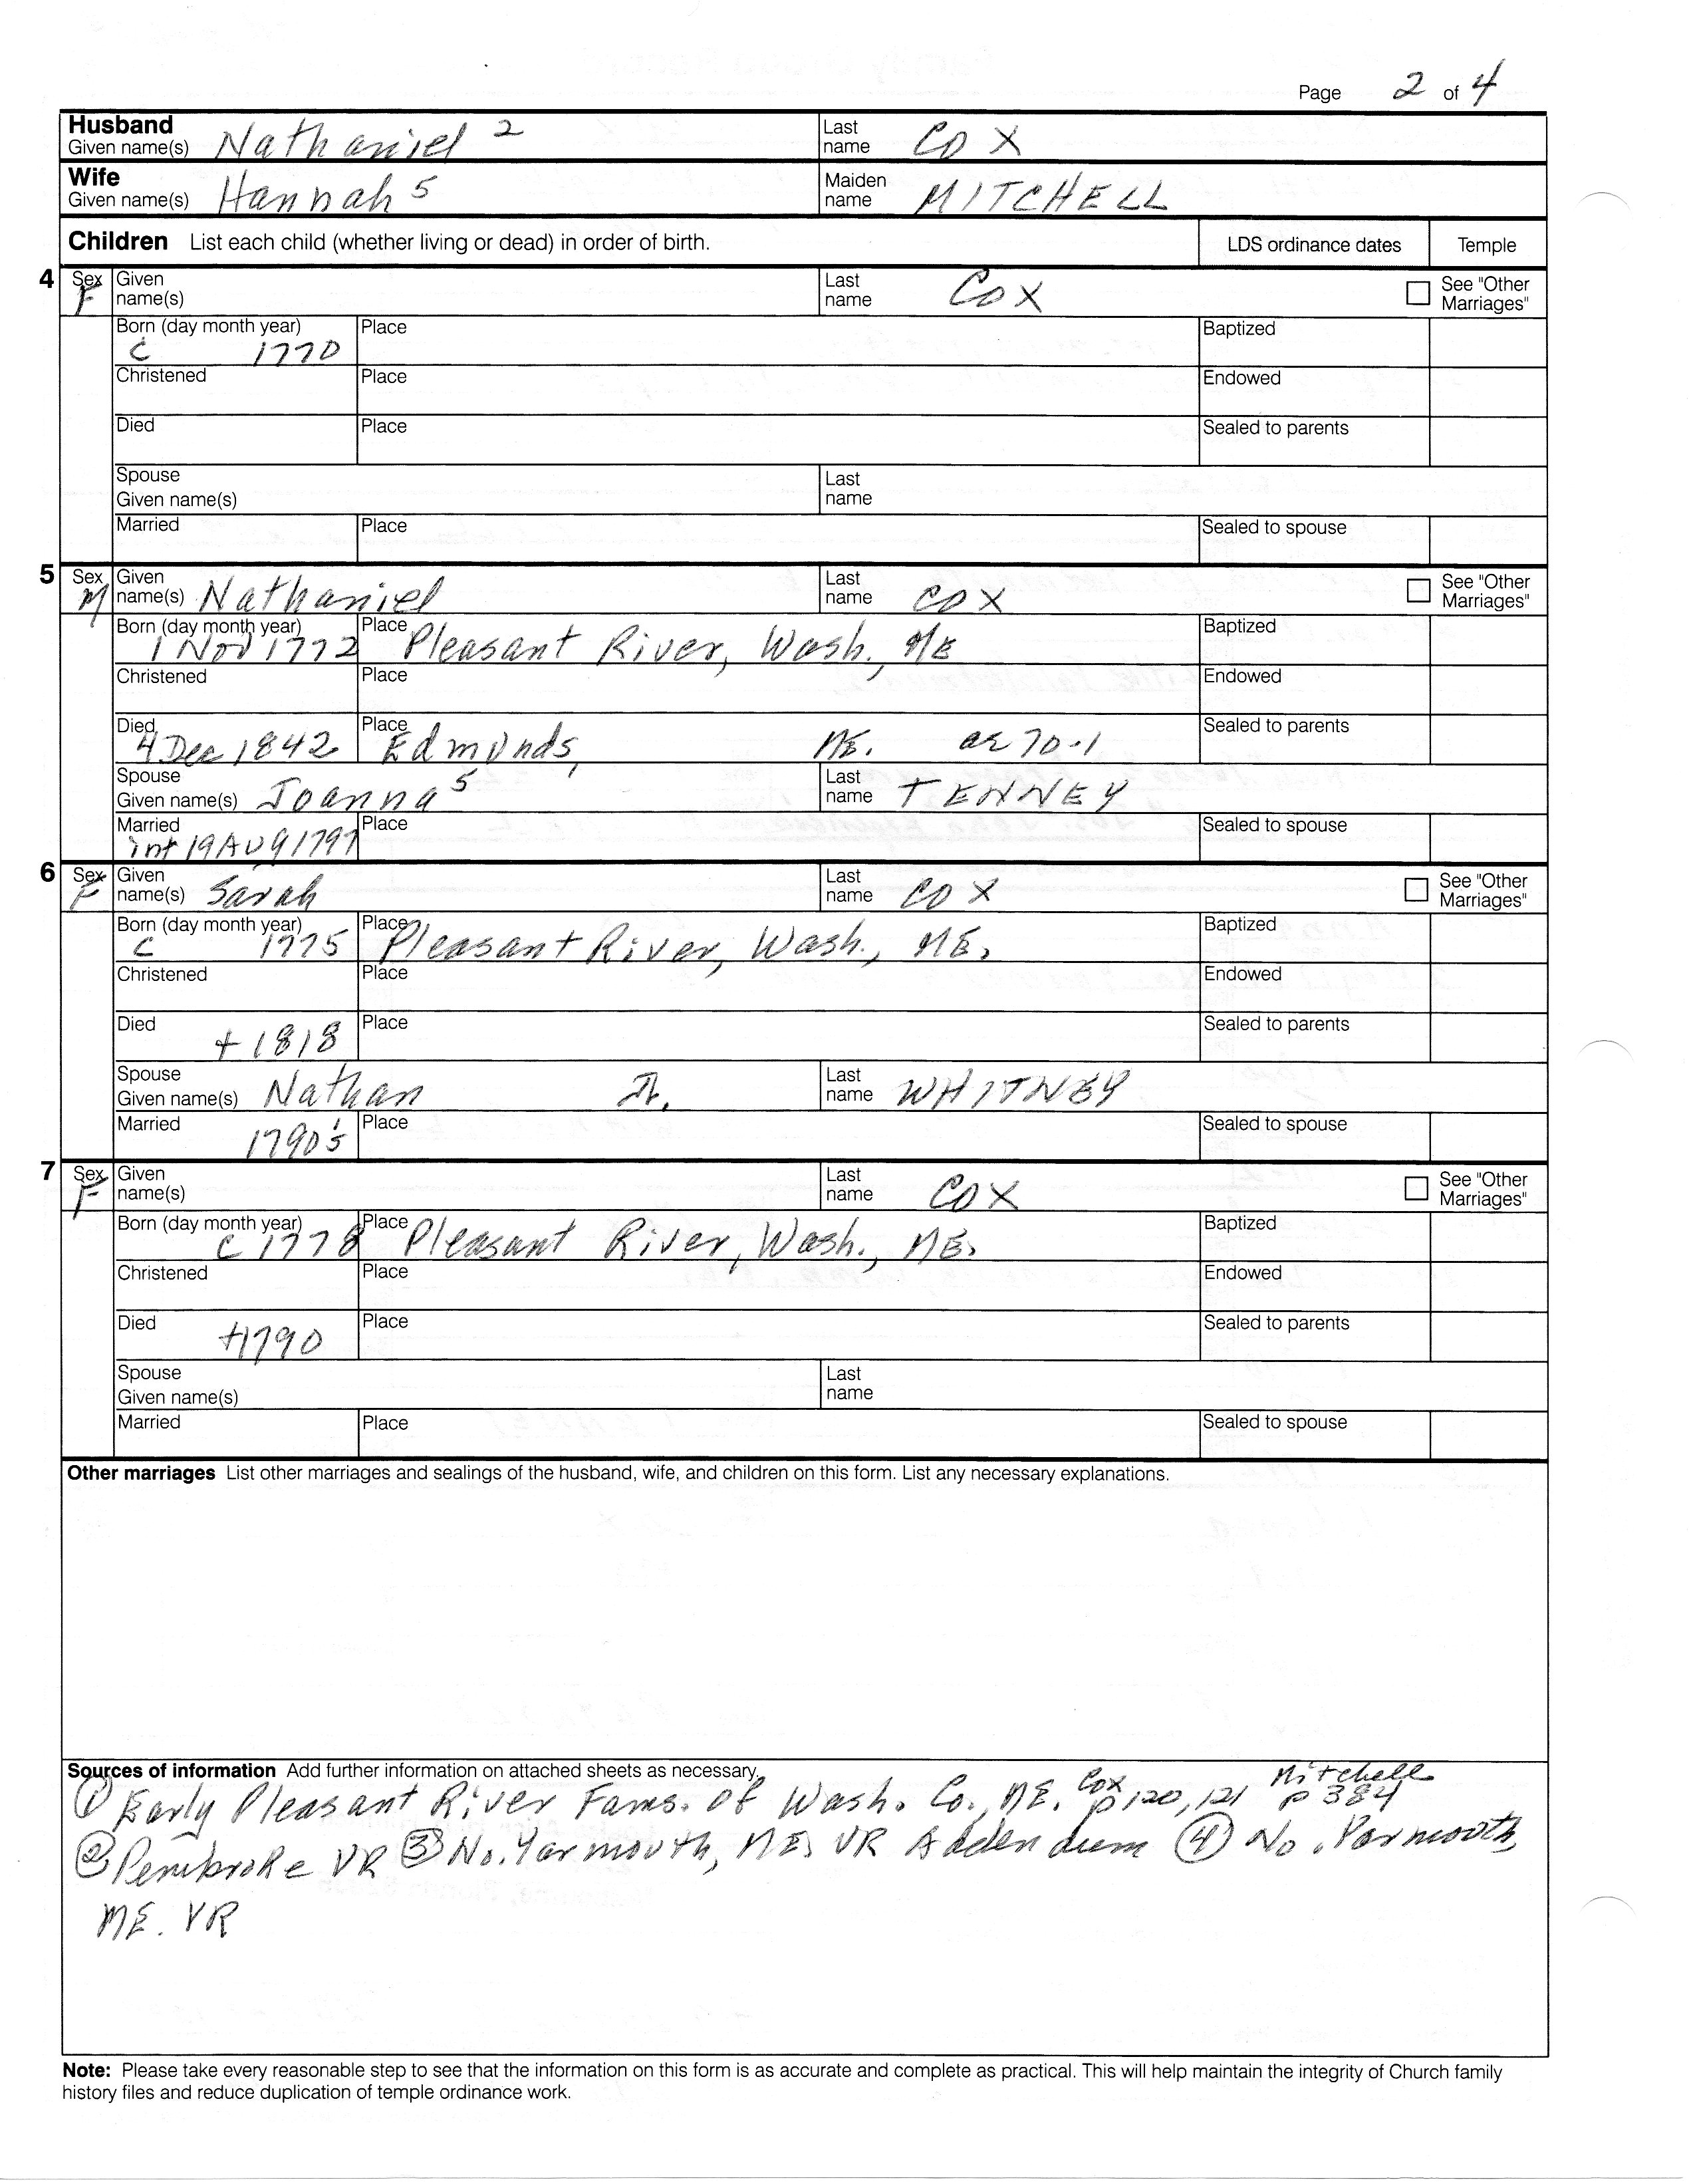 Page 2 of 4
Husband Given name(s) Nathaniel 2 Last name COX
Wife Given name(s) Hannah 5 Maiden name MITCHELL
Children List each child (whether living or dead) in order of birth. LDS ordinance dates Temple
4 Sex F Given name(s) Last name COX See "Other Marriages"
Born (day month year) c 1770 Place Baptized
Christened Place Endowed
Died Place Sealed to parents
Spouse Given name(s) Last name
Married Place Sealed to spouse
5 Sex M Given name(s) Nathaniel Last name COX See "Other Marriages"
Born (day month year) 1 Nov 1772 Place Pleasant River, Wash., ME
Baptized
Christened Place Endowed
Died 4 Dec 1842 Place Edmunds, ME. ae 70-1 Sealed to parents
Spouse Given name(s) Joanna 5 Last name TENNEY
Married int 19 AUG 1797 Place Sealed to spouse
6 Sex F Given name(s) Sarah Last name COX See "Other Marriages"
Born (day month year) c 1775 Place Pleasant River, Wash., ME. Baptized
Christened Place Endowed
Died + 1818 Place Sealed to parents
Spouse Given name(s) Nathan Jr. Last name WHITNEY
Married 1790's Place Sealed to spouse
7 Sex F Given name(s) Last name COX See "Other Marriages"
Born (day month year) c 1778 Place Pleasant River, Wash., ME. Baptized
Christened Place Endowed
Died +1790 Place Sealed to parents
Spouse Given name(s) Last name
Married Place Sealed to spouse
Other marriages List other marriages and sealings of the husband, wife, and children on this form. List any necessary explanations.
Sources of information Add further information on attached sheets as necessary.
① Early Pleasant River Fams. of Wash. Co., ME. Cox p 120, 121 Mitchell p 384
② Pembroke VR ③ No. Yarmouth, ME. VR Addendum ④ No. Yarmouth,
ME. VR
Note: Please take every reasonable step to see that the information on this form is as accurate and complete as practical. This will help maintain the integrity of Church family
history files and reduce duplication of temple ordinance work.